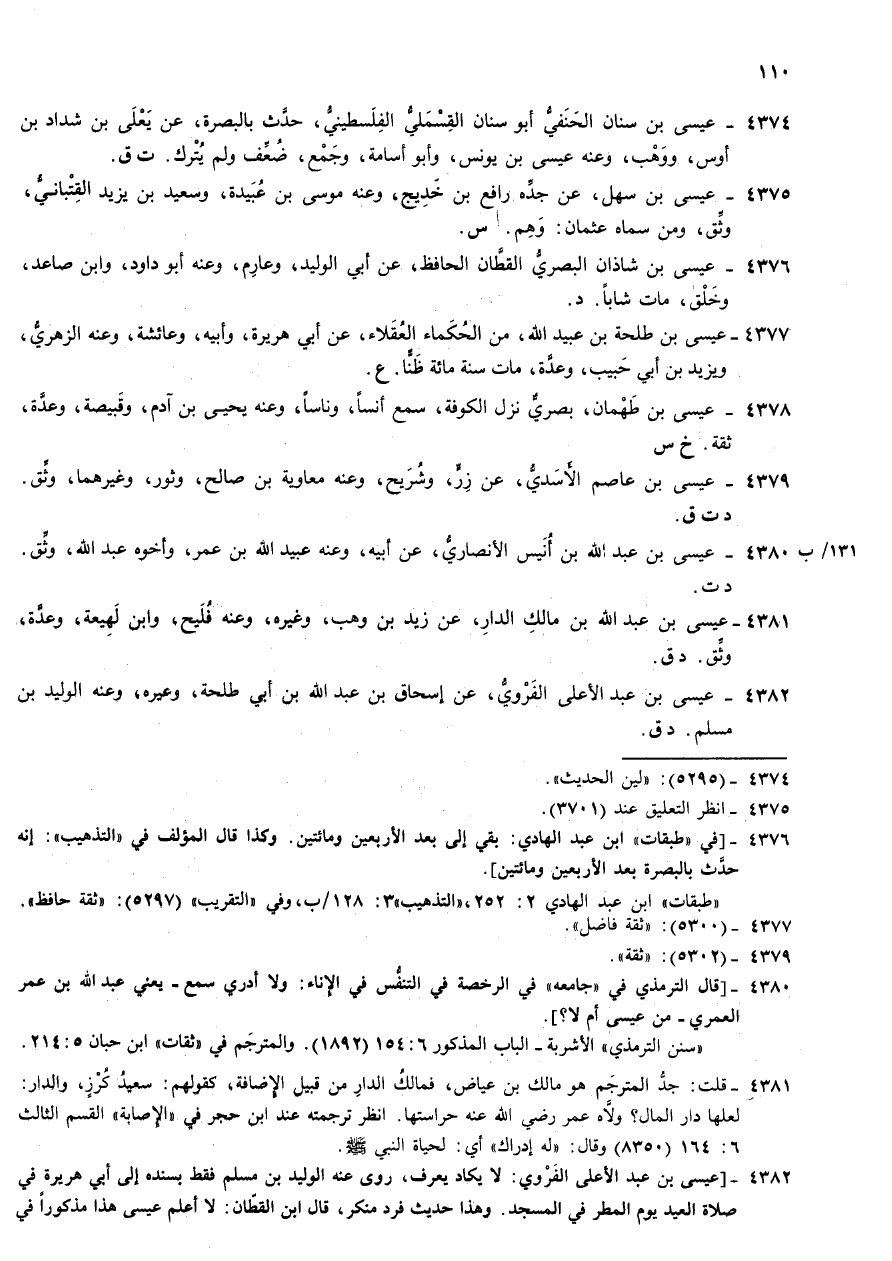 ١١٠
٤٣٧٤ ـ عيسى بن سنان الحَنَفيُّ أبو سنان القِسْمَليُّ الفِلَسطينيُّ، حدَّث بالبصرة، عن يَعْلَى بن شداد بن
أوس، ووَهْب، وعنه عيسى بن يونس، وأبو أسامة، وجَمْع، ضُعِّف ولم يُتْرك. ت ق.
٤٣٧٥ ـ عيسى بن سهل، عن جدِّه رافع بن خَدِيج، وعنه موسى بن عُبَيدة، وسعيد بن يزيد القِتْبانيُّ،
وثِّق، ومن سماه عثمان: وَهِم. س.
٤٣٧٦ ـ عيسى بن شاذان البصريُّ القطَّان الحافظ، عن أبي الوليد، وعارِم، وعنه أبو داود، وابن صاعد،
وخَلْق، مات شاباً. د.
٤٣٧٧ ـ عيسى بن طلحة بن عبيد الله، من الحُكَماء العُقَلاء، عن أبي هريرة، وأبيه، وعائشة، وعنه الزهريُّ،
ويزيد بن أبي حَبيب، وعدَّة، مات سنة مائة ظَنًّا. ع.
٤٣٧٨ ـ عيسى بن طَهْمان، بصريٌّ نزل الكوفة، سمع أنساً، وناساً، وعنه يحيـى بن آدم، وقَبيصة، وعدَّة،
ثقة. خ س
٤٣٧٩ ـ عيسى بن عاصم الأَسَديُّ، عن زِرٍّ، وشُرَيح، وعنه معاوية بن صالح، وثور، وغيرهما، وثِّق.
د ت ق.
١٣١/ ب ٤٣٨٠ ـ عيسى بن عبد الله بن أُنَيس الأنصاريُّ، عن أبيه، وعنه عبيد الله بن عمر، وأخوه عبد الله، وثِّق.
د ت.
٤٣٨١ ـ عيسى بن عبد الله بن مالكِ الدارِ، عن زيد بن وهب، وغيره، وعنه فُلَيح، وابن لَهِيعة، وعدَّة،
وثِّق. د ق.
٤٣٨٢ ـ عيسى بن عبد الأعلى الفَرْويُّ، عن إسحاق بن عبد الله بن أبي طلحة، وغيره، وعنه الوليد بن
مسلم. د ق.
٤٣٧٤ ـ (٥٢٩٥): «لين الحديث».
٤٣٧٥ ـ انظر التعليق عند (٣٧٠١).
٤٣٧٦ ـ [في «طبقات» ابن عبد الهادي: بقي إلى بعد الأربعين ومائتين. وكذا قال المؤلف في «التذهيب»: إنه
حدَّث بالبصرة بعد الأربعين ومائتين].
«طبقات» ابن عبد الهادي ٢: ٢٥٢، «التذهيب» ٣: ١٢٨/ب، وفي «التقريب» (٥٢٩٧): «ثقة حافظ».
٤٣٧٧ ـ (٥٣٠٠): «ثقة فاضل».
٤٣٧٩ ـ (٥٣٠٢): «ثقة».
٤٣٨٠ ـ [قال الترمذي في «جامعه» في الرخصة في التنفُّس في الإناء: ولا أدري سمع ـ يعني عبد الله بن عمر
العمري ـ من عيسى أم لا؟].
«سنن الترمذي» الأشربة ـ الباب المذكور ٦: ١٥٤ (١٨٩٢). والمترجَم في «ثقات» ابن حبان ٥: ٢١٤.
٤٣٨١ ـ قلت: جدُّ المترجَم هو مالك بن عياض، فمالكُ الدارِ من قبيل الإضافة، كقولهم: سعيدُ كُرْزٍ، والدار:
لعلها دار المال؟ ولاَّه عمر رضي الله عنه حراستها. انظر ترجمته عند ابن حجر في «الإصابة» القسم الثالث
٦: ١٦٤ (٨٣٥٠) وقال: «له إدراك» أي: لحياة النبي ﷺ.
٤٣٨٢ ـ [عيسى بن عبد الأعلى الفَرْوي: لا يكاد يعرف، روى عنه الوليد بن مسلم فقط بسنده إلى أبي هريرة في
صلاة العيد يوم المطر في المسجد. وهذا حديث فرد منكر، قال ابن القطّان: لا أعلم عيسى هذا مذكوراً في